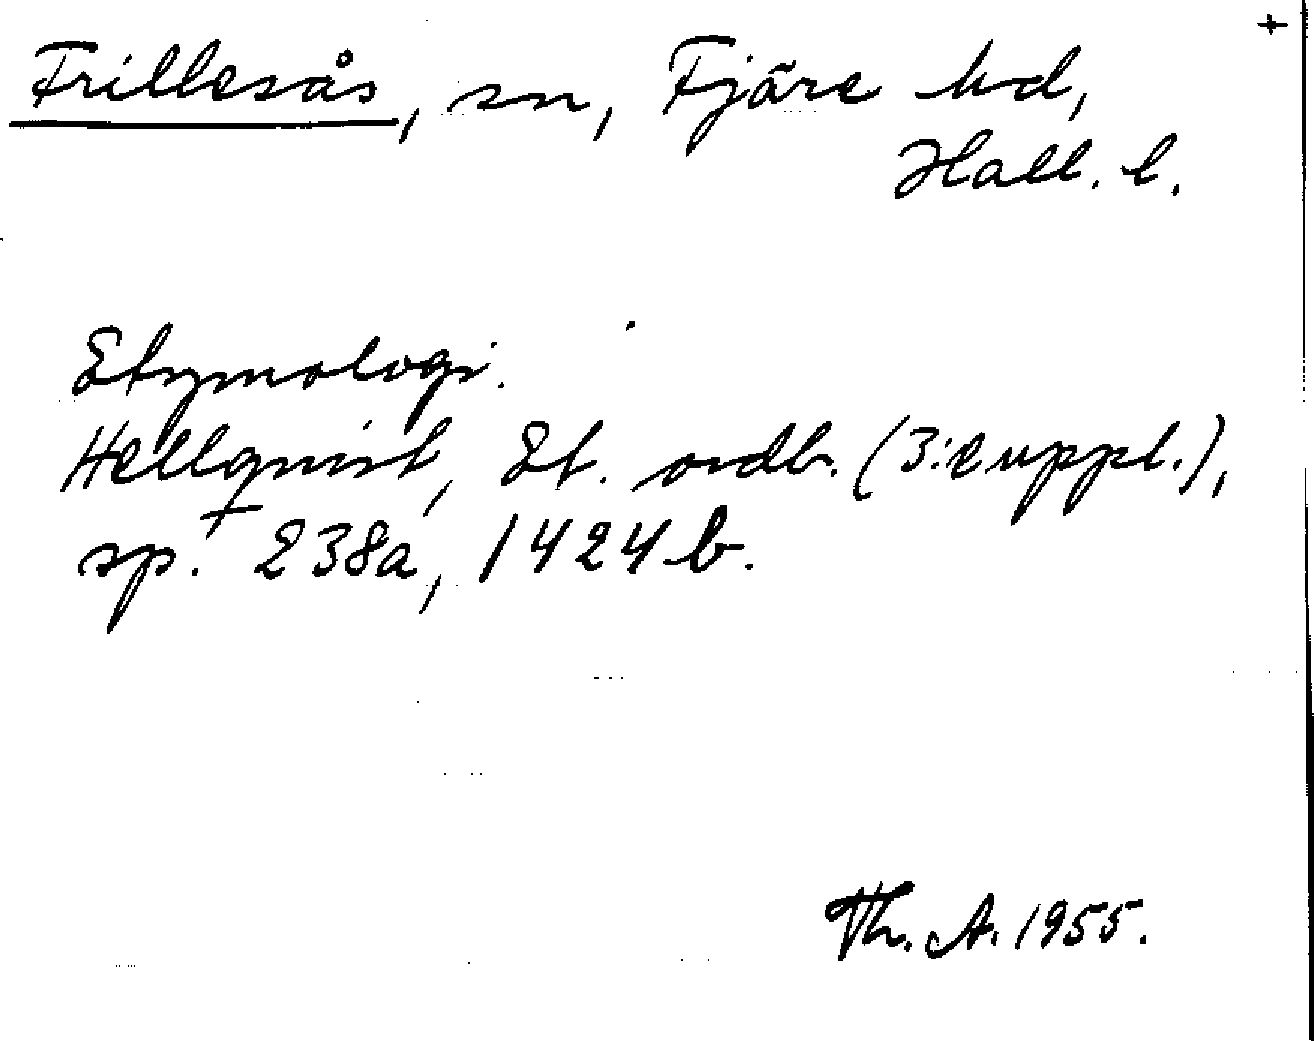 +
Frillesås, sn, Fjäre hd,
Hall. l.
Etymologi.
Hellquist, Et. ordb. (3:e uppl.),
sp. 238a, 1424 b.
Th. A. 1955.